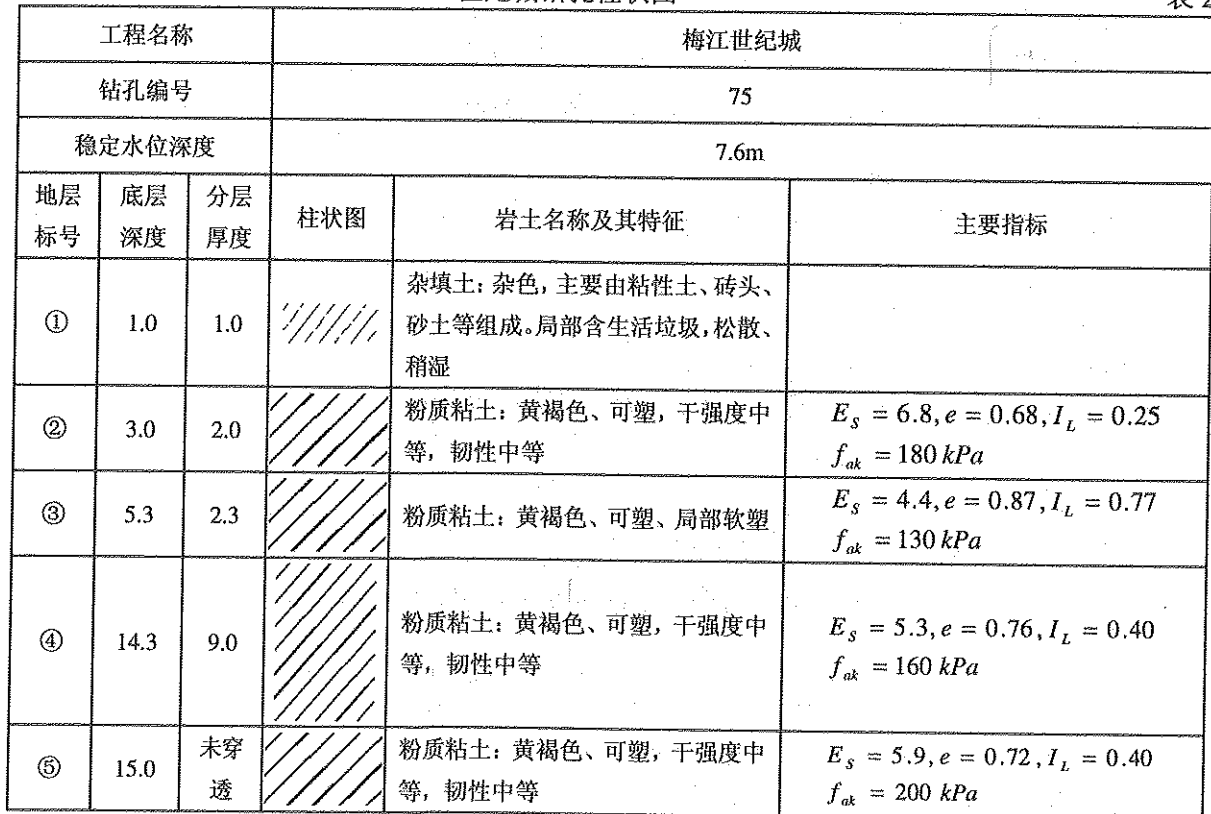 工程名称 梅江世纪城
钻孔编号 75
稳定水位深度 7.6m
地层标号 底层深度 分层厚度 柱状图 岩土名称及其特征 主要指标
① 1.0 1.0
杂填土：杂色，主要由粘性土、砖头、
砂土等组成。局部含生活垃圾，松散、
稍湿
② 3.0 2.0
粉质粘土：黄褐色、可塑，干强度中
等，韧性中等
E_S = 6.8, e = 0.68, I_L = 0.25
f_ak = 180 kPa
③ 5.3 2.3
粉质粘土：黄褐色、可塑、局部软塑
E_S = 4.4, e = 0.87, I_L = 0.77
f_ak = 130 kPa
④ 14.3 9.0
粉质粘土：黄褐色、可塑，干强度中
等，韧性中等
E_S = 5.3, e = 0.76, I_L = 0.40
f_ak = 160 kPa
⑤ 15.0 未穿透
粉质粘土：黄褐色、可塑，干强度中
等，韧性中等
E_S = 5.9, e = 0.72, I_L = 0.40
f_ak = 200 kPa